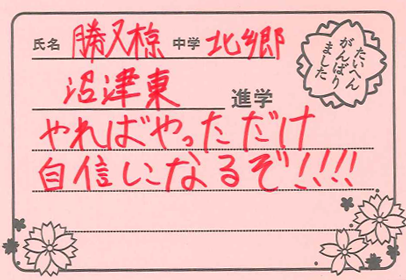 氏名 勝又椋 中学 北郷
沼津東 進学
やればやっただけ
自信になるぞ!!!!
たいへん
がんばり
ました